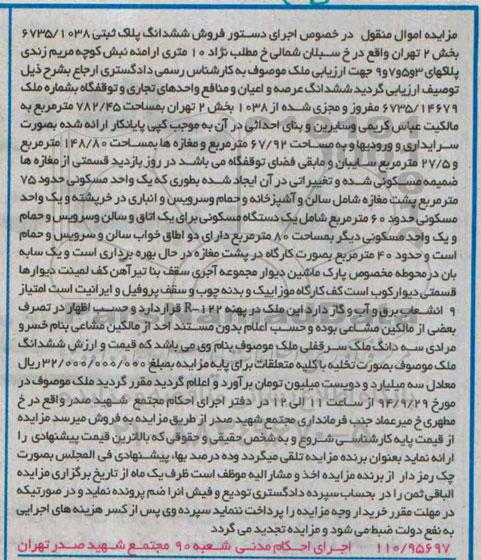 مزایده اموال منقول در خصوص اجرای دستور فروش ششدانگ پلاک ثبتی ۶۷۳۵/۱۰۳۸
بخش ۲ تهران واقع در خ سبلان شمالی خ مطلب نژاد ۱۰ متری ارامنه نبش کوچه مریم زندی
پلاکهای ۹۳و۹۵و۷ جهت ارزیابی ملک موصوف به کارشناس رسمی دادگستری ارجاع بشرح ذیل
توصیف ارزیابی گردید ششدانگ عرصه و اعیان و منافع واحدهای تجاری و توقفگاه بشماره ملک
۶۷۳۵/۱۴۶۷۹ مفروز و مجزی شده از ۱۰۳۸ بخش ۲ تهران بمساحت ۷۸۲/۴۵ مترمربع به
مالکیت عباس کریمی وسایرین و بنای احداثی در آن به موجب کپی پایانکار ارائه شده بصورت
سرایداری و ورودیها و به مساحت ۶۷/۹۲ مترمربع و مغازه ها بمساحت ۱۴۸/۸۰ مترمربع
و ۲۷/۵ مترمربع سایبان و مابقی فضای توقفگاه می باشد در روز بازدید قسمتی از مغازه ها
ضمیمه مسکونی شده و تغییراتی در آن ایجاد شده بطوری که یک واحد مسکونی حدود ۷۵
مترمربع پشت مغازه شامل سالن و آشپزخانه و حمام وسرویس و انباری در خرپشته و یک واحد
مسکونی حدود ۶۰ مترمربع شامل یک دستگاه مسکونی برای یک اتاق و سالن وسرویس و حمام
و یک واحد مسکونی دیگر بمساحت ۸۰ مترمربع دارای دو اطاق خواب سالن و سرویس و حمام
است و حدود ۴۰ مترمربع بصورت کارگاه در پشت مغازه در حال بهره برداری است و یک سایه
بان درمحوطه مخصوص پارک ماشین دیوار مجموعه آجری سقف بنا تیرآهن کف لمینت دیوارها
قسمتی دیوارکوب است کف کارگاه موزاییک و بدنه چوب و سقف پروفیل و ایرانیت است امتیاز
۹ انشعاب برق و آب و گاز دارد این ملک در پهنه R-۱۲۲ قراردارد و حسب اظهار در تصرف
بعضی از مالکین مشاعی بوده و حسب اعلام بدون مستند احد از مالکین مشاعی بنام خسرو
مرادی سه دانگ ملک سرقفلی ملک موصوف بنام وی می باشد که قیمت و ارزش ششدانگ
ملک موصوف بصورت تخلیه باکلیه متعلقات برای پایه مزایده بمبلغ ۳۲/۰۰۰/۰۰۰/۰۰۰ ریال
معادل سه میلیارد و دویست میلیون تومان برآورد و اعلام گردید مقرر گردید ملک موصوف در
مورخ ۹۴/۷/۲۹ از ساعت ۱۱ الی ۱۲ در دفتر اجرای احکام مجتمع شهید صدر واقع در خ
مطهری خ میرعماد جنب فرمانداری مجتمع شهید صدر از طریق مزایده به فروش میرسد مزایده
از قیمت پایه کارشناسی شروع و به شخص حقیقی و حقوقی که بالاترین قیمت پیشنهادی را
ارائه نماید بعنوان برنده مزایده تلقی میگردد وده درصد بهاء پیشنهادی فی المجلس بصورت
چک رمز دار از برنده مزایده اخذ و مشارالیه موظف است ظرف یک ماه از تاریخ برگزاری مزایده
الباقی ثمن را در بحساب سپرده دادگستری تودیع و فیش انرا ضم پرونده نماید و در صورتیکه
در مهلت مقرر خریدار وجه مزایده را پرداخت ننماید سپرده وی پس از کسر هزینه های اجرایی
به نفع دولت ضبط می شود و مزایده تجدید می گردد
۱۱۰/۹۵۶۹۷ اجرای احکام مدنی شعبه ۹۰ مجتمع شهید صدر تهران